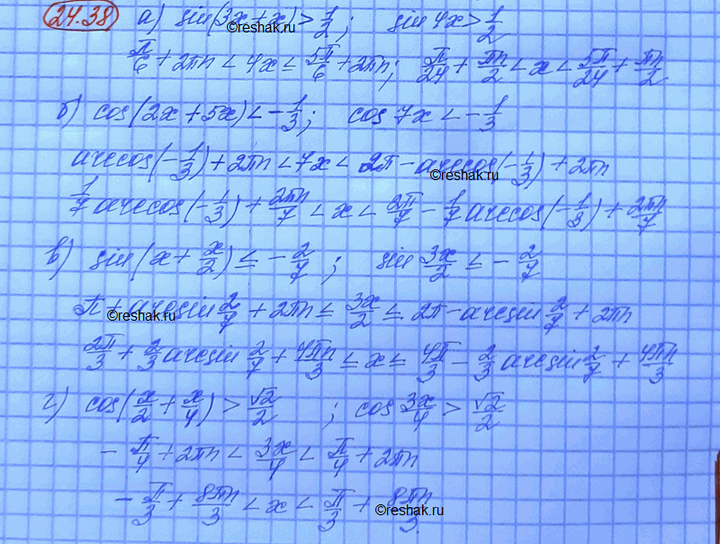 24.38 а) sin(3x+x) > 1/2; sin 4x > 1/2
π/6 + 2πn < 4x ≤ 5π/6 + 2πn; π/24 + πn/2 < x < 5π/24 + πn/2
б) cos(2x + 5x) < -1/3; cos 7x < -1/3
arccos(-1/3) + 2πn < 7x < 2π - arccos(-1/3) + 2πn
1/7 arccos(-1/3) + 2πn/7 < x < 2π/7 - 1/7 arccos(-1/3) + 2πn/7
в) sin(x + x/2) ≤ -2/7; sin 3x/2 ≤ -2/7
π + arcsin 2/7 + 2πn ≤ 3x/2 ≤ 2π - arcsin 2/7 + 2πn
2π/3 + 2/3 arcsin 2/7 + 4πn/3 ≤ x ≤ 4π/3 - 2/3 arcsin 2/7 + 4πn/3
г) cos(x/2 + x/4) > √2/2; cos 3x/4 > √2/2
- π/4 + 2πn < 3x/4 < π/4 + 2πn
- π/3 + 8πn/3 < x < π/3 + 8πn/3
©reshak.ru
©reshak.ru
©reshak.ru
©reshak.ru